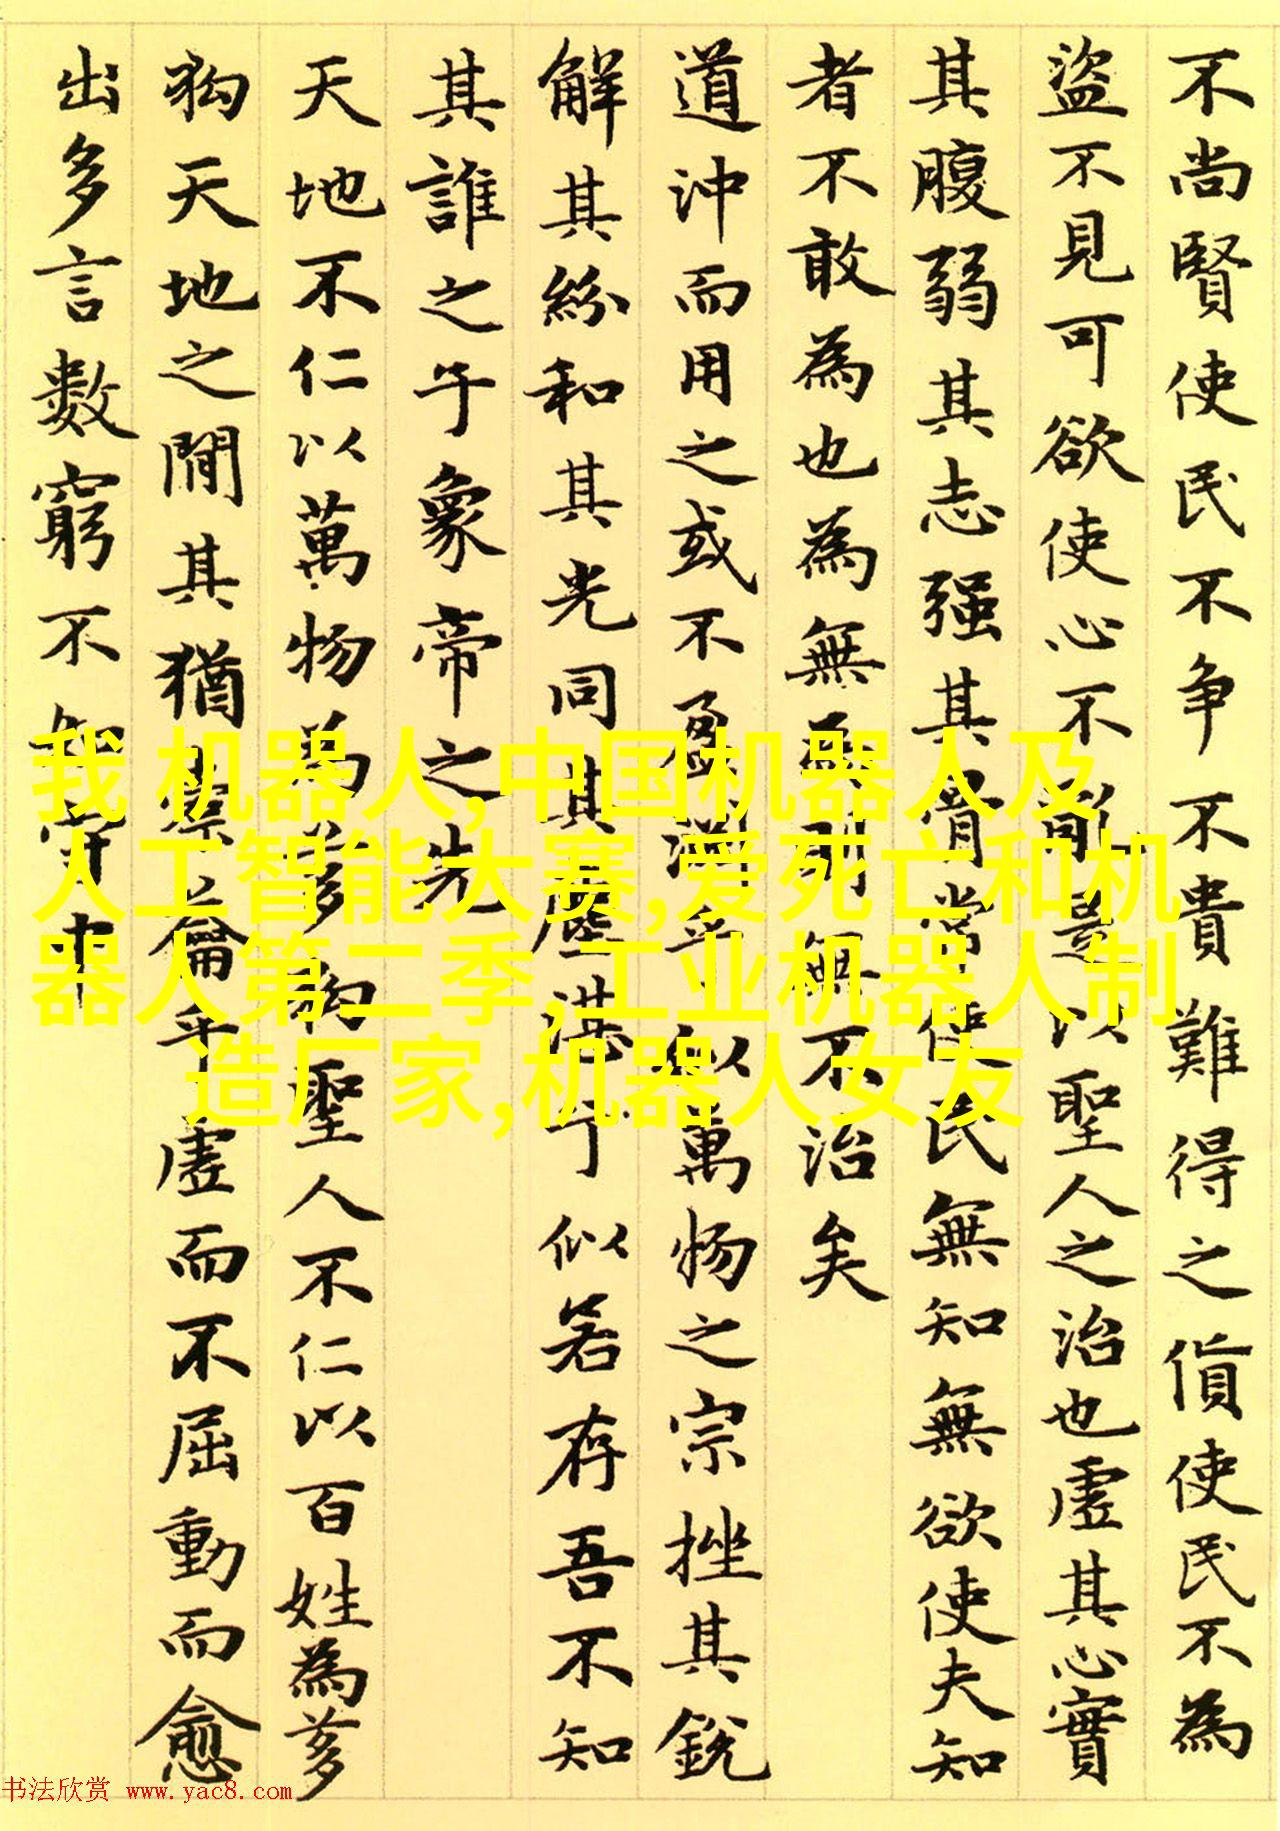 不尚賢使民不争不貴難得之貨使民不為
盜不見可欲使心不亂是以聖人之治也虛其心實
其腹弱其志强其骨常使民無知無欲使夫知
者不敢為也為無為則無不治矣
道沖而用之或不盈淵乎似萬物之宗挫其銳
解其紛和其光同其塵湛兮似若存吾不知
其誰之子象帝之先
天地不仁以萬物為芻狗聖人不仁以百姓為芻
狗天地之間其猶橐籥乎虛而不屈動而愈
出多言數窮不如守中
我 机器人,中国机器人及
人工智能大赛,爱死亡和机
器人第二季,工业机器人制
造厂家,机器人女友
书法欣赏 www.yac8.com